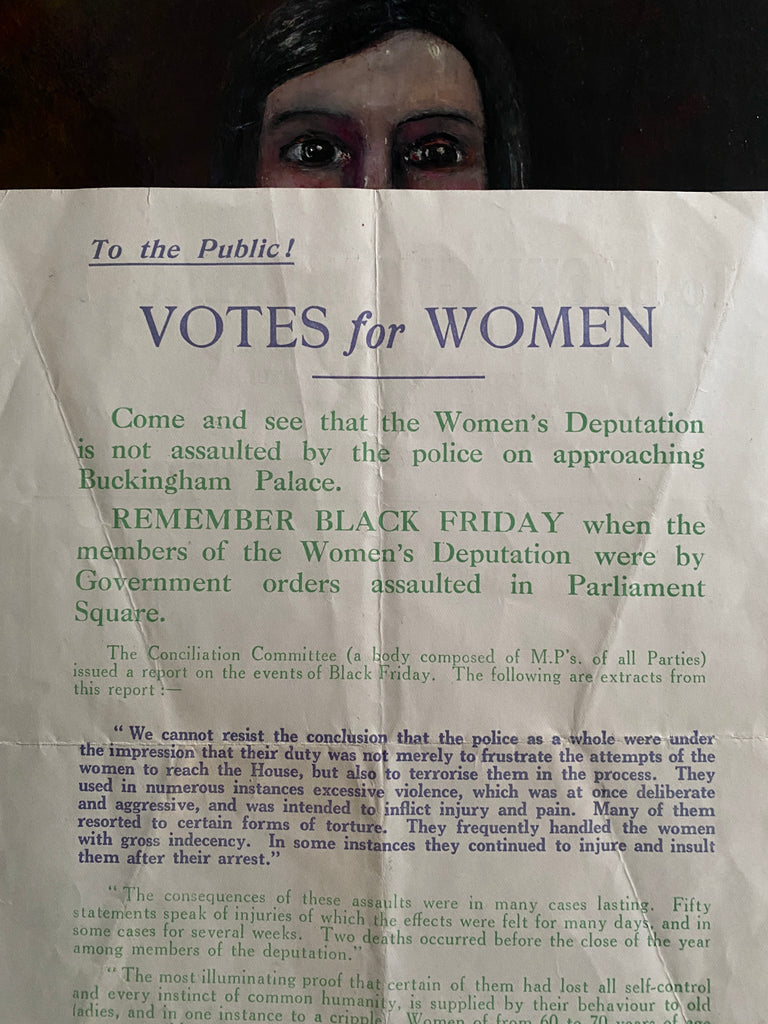 To the Public!
VOTES for WOMEN
Come and see that the Women's Deputation
is not assaulted by the police on approaching
Buckingham Palace.
REMEMBER BLACK FRIDAY when the
members of the Women's Deputation were by
Government orders assaulted in Parliament
Square.
The Conciliation Committee (a body composed of M.P's. of all Parties)
issued a report on the events of Black Friday. The following are extracts from
this report :—
“ We cannot resist the conclusion that the police as a whole were under
the impression that their duty was not merely to frustrate the attempts of the
women to reach the House, but also to terrorise them in the process. They
used in numerous instances excessive violence, which was at once deliberate
and aggressive, and was intended to inflict injury and pain. Many of them
resorted to certain forms of torture. They frequently handled the women
with gross indecency. In some instances they continued to injure and insult
them after their arrest.”
“ The consequences of these assaults were in many cases lasting. Fifty
statements speak of injuries of which the effects were felt for many days, and in
some cases for several weeks. Two deaths occurred before the close of the year
among members of the deputation.”
“ The most illuminating proof that certain of them had lost all self-control
and every instinct of common humanity, is supplied by their behaviour to old
ladies, and in one instance to a cripple. Women of from 60 to 70 years of age